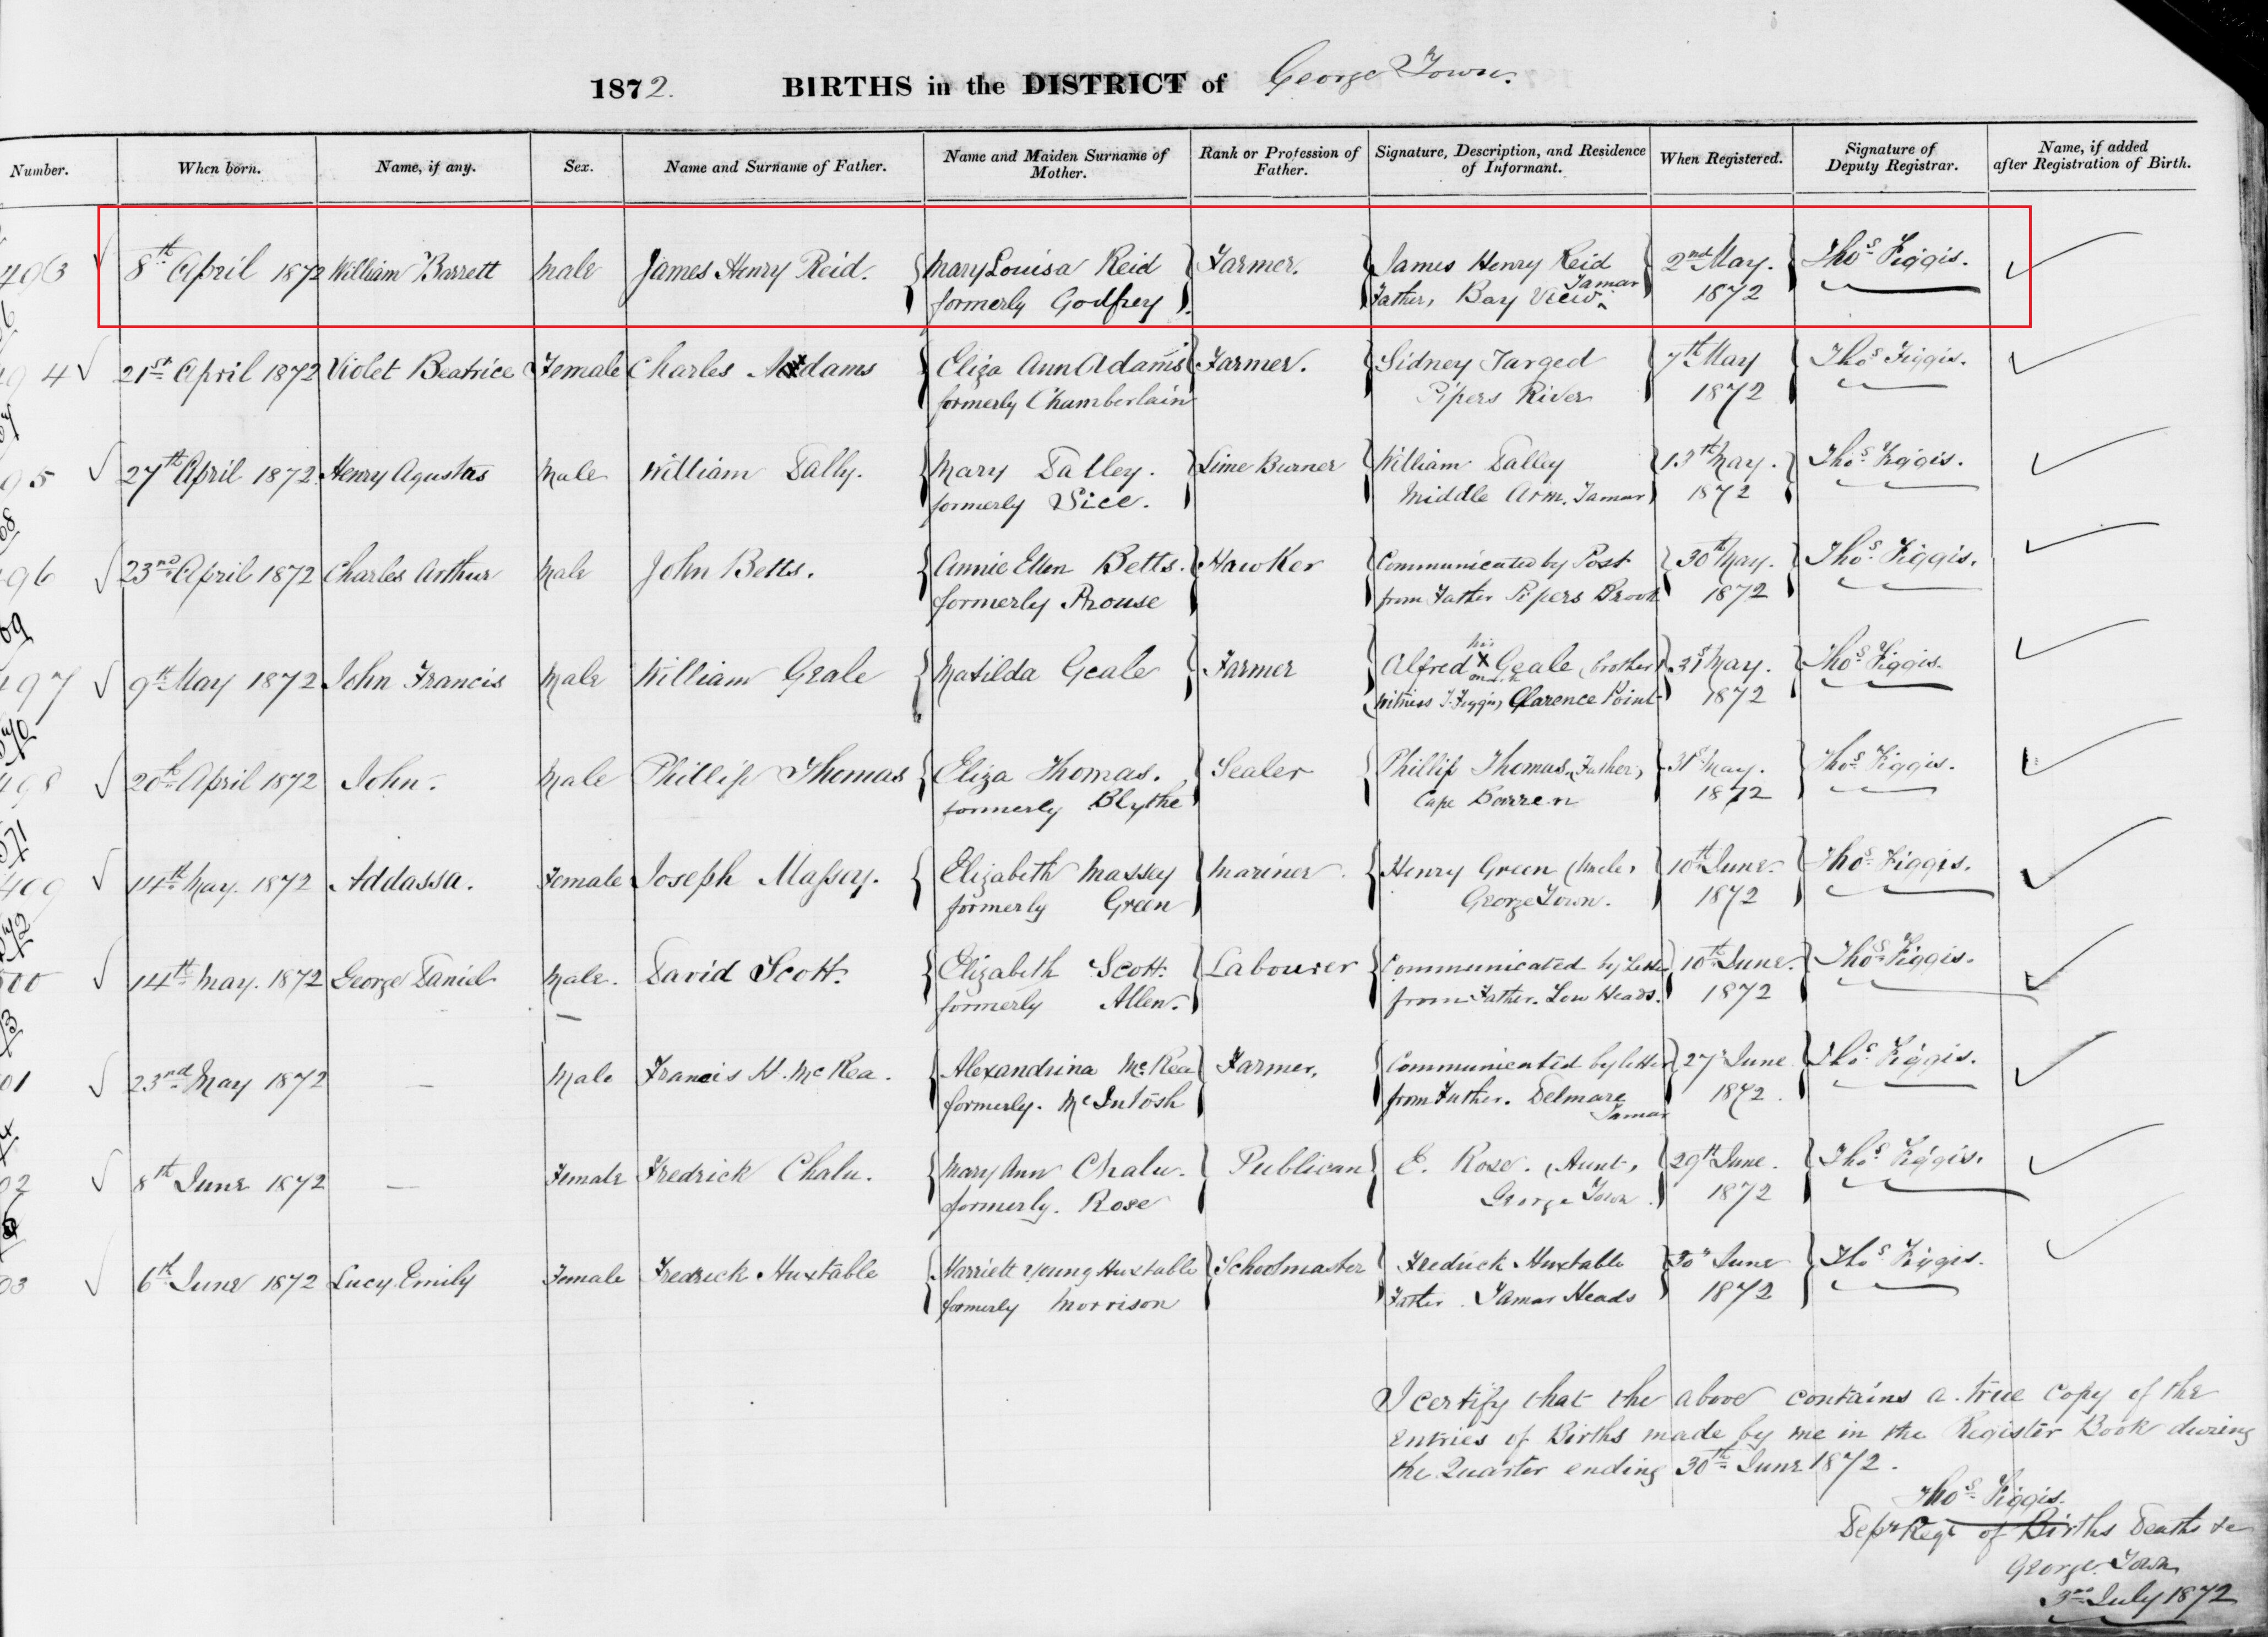 1872. BIRTHS in the DISTRICT of George Town.
Number. When born. Name, if any. Sex. Name and Surname of Father. Name and Maiden Surname of Mother. Rank or Profession of Father. Signature, Description, and Residence of Informant. When Registered. Signature of Deputy Registrar. Name, if added after Registration of Birth.
493 8th April 1872 William Barrett Male James Henry Reid. Mary Louisa Reid Farmer. James Henry Reid 2nd May. Thos Figgis.
formerly Godfrey Father, Bay View Tamar 1872
94 21st April 1872 Violet Beatrice Female Charles Adams Eliza Ann Adams Farmer. Sidney Targed 7th May Thos Figgis.
formerly Chamberlain Pipers River 1872
95 27th April 1872 Henry Agustas Male William Dally. Mary Dalley. Lime Burner William Dalley 13th May. Thos Figgis.
formerly Sice. Middle Arm. Tamar 1872
96 23nd April 1872 Charles Arthur Male John Betts. Annie Ellen Betts. Hawker Communicated by Post 30th May. Thos Figgis.
formerly Prouse from Father Pipers Brook 1872
497 9th May 1872 John Francis Male William Geale Matilda Geale Farmer Alfred his X mark Geale, brother 31st May. Thos Figgis.
witness T. Figgis, Clarence Point 1872
498 20th April 1872 John. Male Phillip Thomas Eliza Thomas. Sealer Phillip Thomas, Father, 31st May. Thos Figgis.
formerly Blythe Cape Barren 1872
499 14th May. 1872 Addassa. Female Joseph Massey. Elizabeth Massey Mariner. Henry Green Uncle, 10th June. Thos Figgis.
formerly Green George Town. 1872
00 14th May. 1872 George Daniel Male. David Scott. Elizabeth Scott. Labourer Communicated by Letter 10th June. Thos Figgis.
formerly Allen. from Father. Low Heads. 1872
01 23nd May 1872 — Male Francis H. McRea. Alexandrina McRea Farmer, Communicated by letter 27th June Thos Figgis.
formerly. McIntosh from Father. Delmare Tamar 1872.
02 8th June 1872 — Female Fredrick Chalu. Mary Ann Chalu. Publican E. Rose. Aunt, 29th June. Thos Figgis.
formerly. Rose George Town. 1872
03 6th June 1872 Lucy Emily Female Fredrick Huxtable Harriett Young Huxtable Schoolmaster Fredrick Huxtable 30th June Thos Figgis.
formerly Morrison Father. Tamar Heads 1872
I certify that the above contains a true Copy of the
Entries of Births made by me in the Register Book during
the Quarter ending 30th June 1872.
Thos Figgis.
Depy Regr of Births Deaths &c
George Town
3rd July 1872